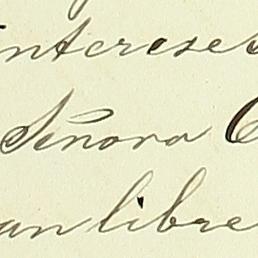 intereses
Señora
an libre